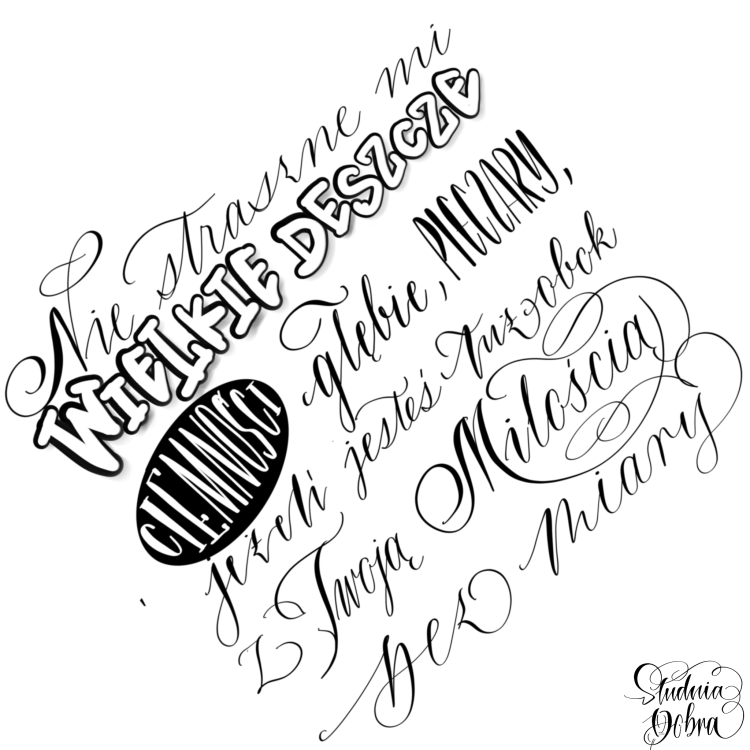 Nie straszne mi
WIELKIE DESZCZE
CIEMNOŚCI głębie, PIECZARY,
jeżeli jesteś tuż obok
z Twoją Miłością
bez miary
Studnia
Dobra